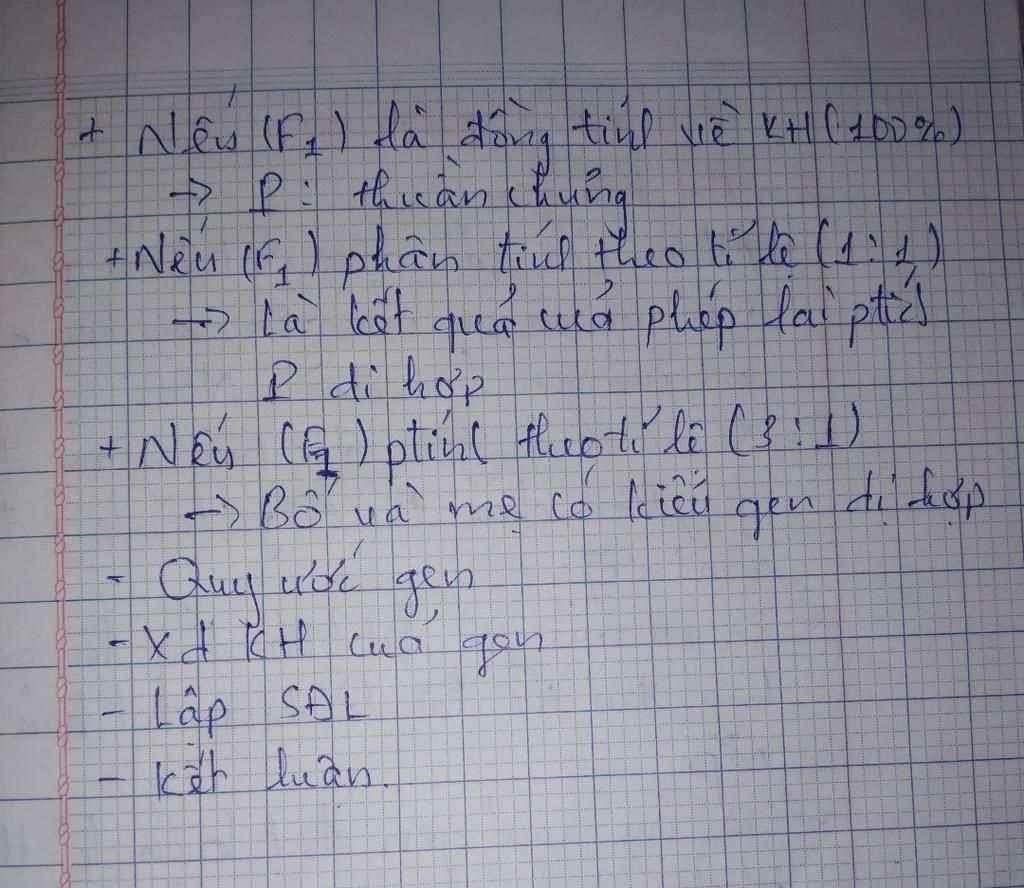 + Nếu (F1) là đồng tính về KH (100%)
→ P: thuần chủng
+ Nếu (F1) phân tính theo tỉ lệ (1:1)
→ Là kết quả của phép lai ptích
P dị hợp
+ Nếu (F1) ptính theo tỉ lệ (3:1)
→ Bố và mẹ có kiểu gen dị hợp
- Quy ước gen
- Xđ KH của gen
- Lập SĐL
- Kết luận.